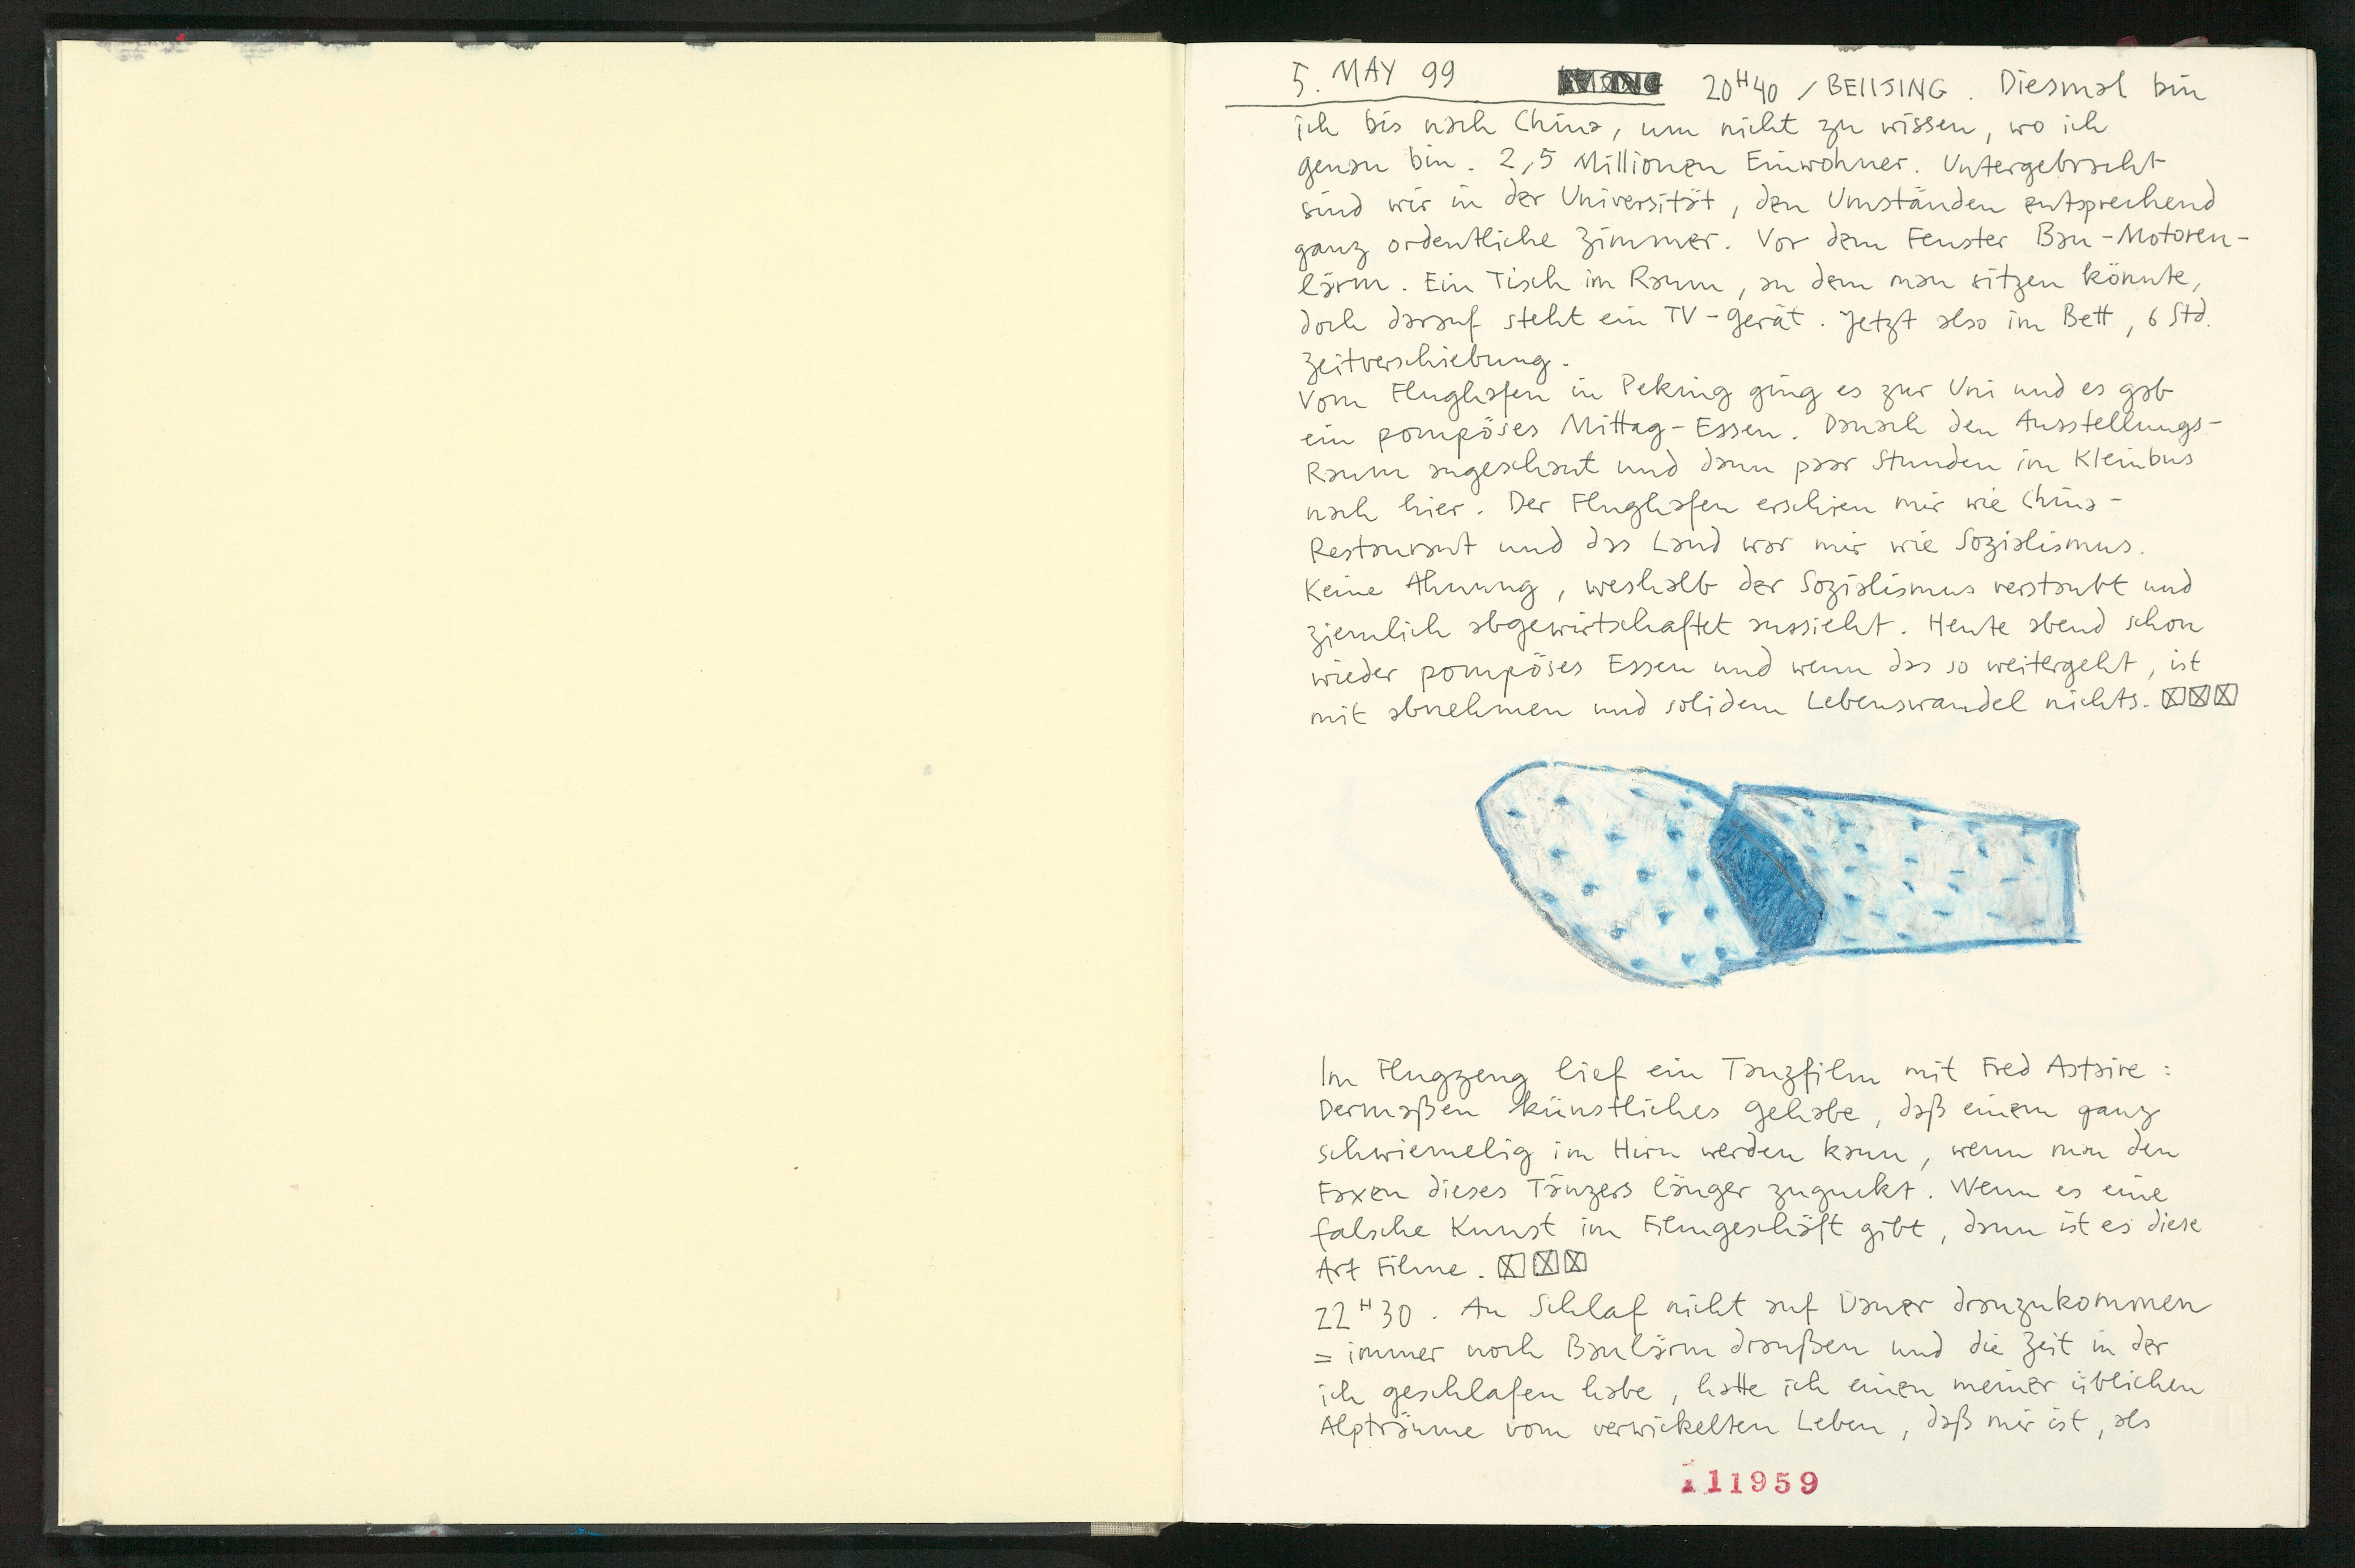 5. MAY 99 20H40 / BEIIJING. Diesmal bin
ich bis nach China, um nicht zu wissen, wo ich
genau bin. 2,5 Millionen Einwohner. Untergebracht
sind wir in der Universität, den Umständen entsprechend
ganz ordentliche Zimmer. Vor dem Fenster Bau-Motoren-
lärm. Ein Tisch im Raum, an dem man sitzen könnte,
doch darauf steht ein TV-Gerät. Jetzt also im Bett, 6 Std.
Zeitverschiebung.
Vom Flughafen in Peking ging es zur Uni und es gab
ein pompöses Mittag-Essen. Danach den Ausstellungs-
Raum angeschaut und dann paar Stunden im Kleinbus
nach hier. Der Flughafen erschien mir wie China-
Restaurant und das Land war mir wie Sozialismus.
Keine Ahnung, weshalb der Sozialismus verstaubt und
ziemlich abgewirtschaftet aussieht. Heute abend schon
wieder pompöses Essen und wenn das so weitergeht, ist
mit abnehmen und solidem Lebenswandel nichts.
Im Flugzeug lief ein Tanzfilm mit Fred Astaire:
Dermaßen künstliches Gehabe, daß einem ganz
schwiemelig im Hirn werden kann, wenn man den
Faxen dieses Tänzers länger zuguckt. Wenn es eine
falsche Kunst im Filmgeschäft gibt, dann ist es diese
Art Filme.
22H30. An Schlaf nicht auf Dauer dranzukommen
= immer noch Baulärm draußen und die Zeit in der
ich geschlafen habe, hatte ich einen meiner üblichen
Alpträume vom verwickelten Leben, daß mir ist, als
111959